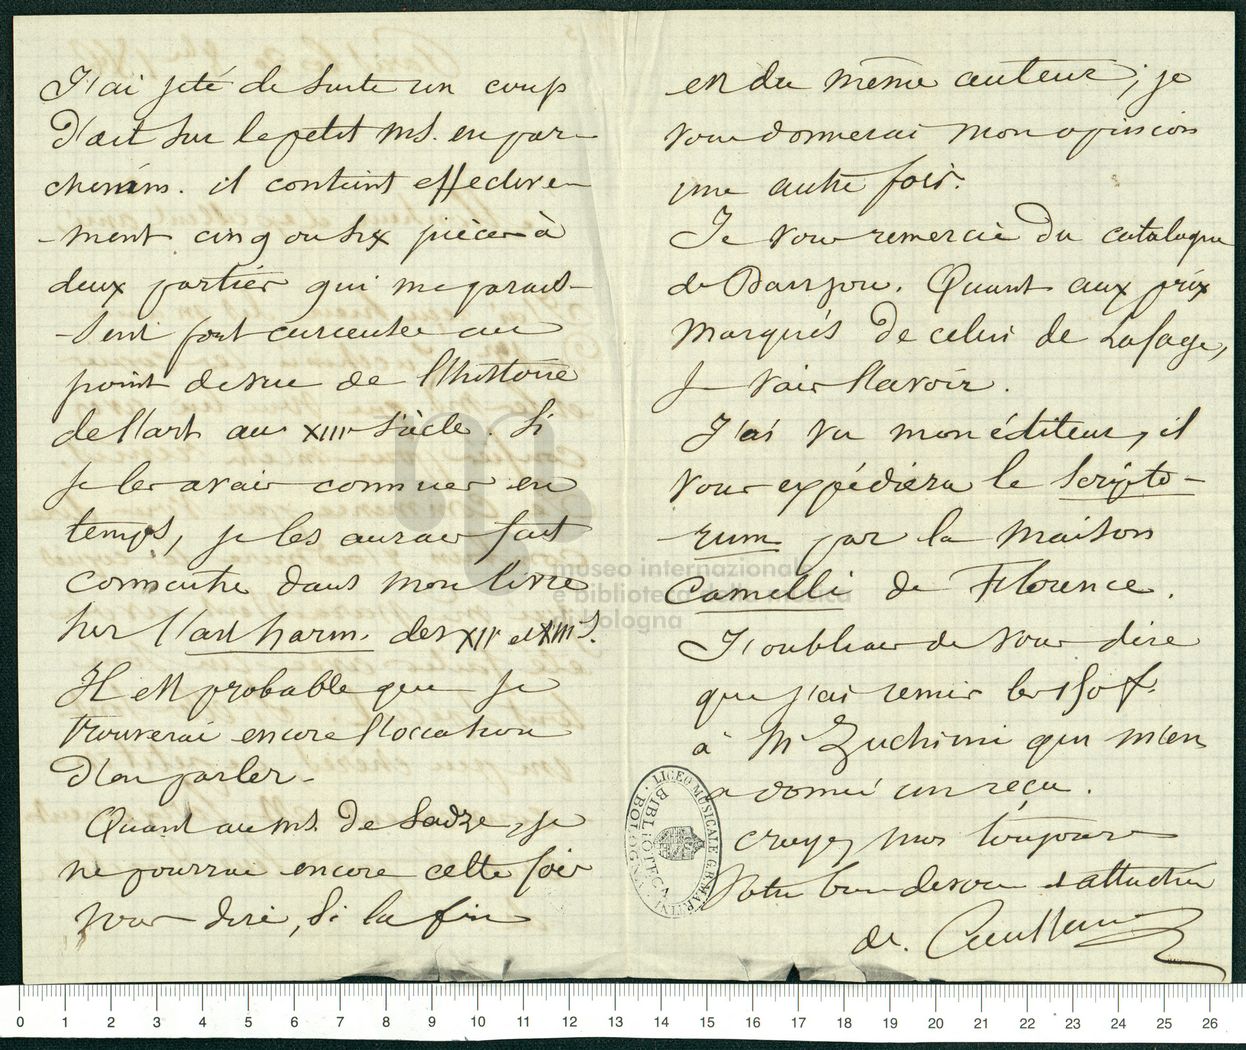 J'ai jeté de suite un coup
d'œil sur le petit ms. en par-
chemin. il contient effective-
-ment cinq ou six pièces à
deux parties qui me parais-
-sent fort curieuses au
point de vue de l'histoire
de l'art au XIIIe siècle. Si
je les avais connues en
temps, je les aurais fait
connaître dans mon livre
sur l'art harm. des XIIe et XIIIe S.
Il est probable que je
trouverai encore l'occasion
d'en parler.
Quant au ms. de Sadze, je
ne pourrai encore cette fois
vous dire, si la fin
est du même auteur; je
vous donnerai mon opinion
une autre fois.
Je vous remercie du catalogue
de Quant aux prix
marqués de celui de Lafage,
je vais l'avoir.
J'ai vu mon éditeur, il
vous expédiera le Scripto-
-rum par la maison
Camelli de Florence.
J'oubliais de vous dire
que j'ai remis les 150 f.
à Mr Zuchini qui m'en
a donné un reçu.
Croyez moi toujours
Votre bien dévoué et affectionné
de. Coussemaker
LICEO MUSICALE G.B. MARTINI BOLOGNA
BIBLIOTECA
museo internazionale
e biblioteca della musica
di bologna
0 1 2 3 4 5 6 7 8 9 10 11 12 13 14 15 16 17 18 19 20 21 22 23 24 25 26